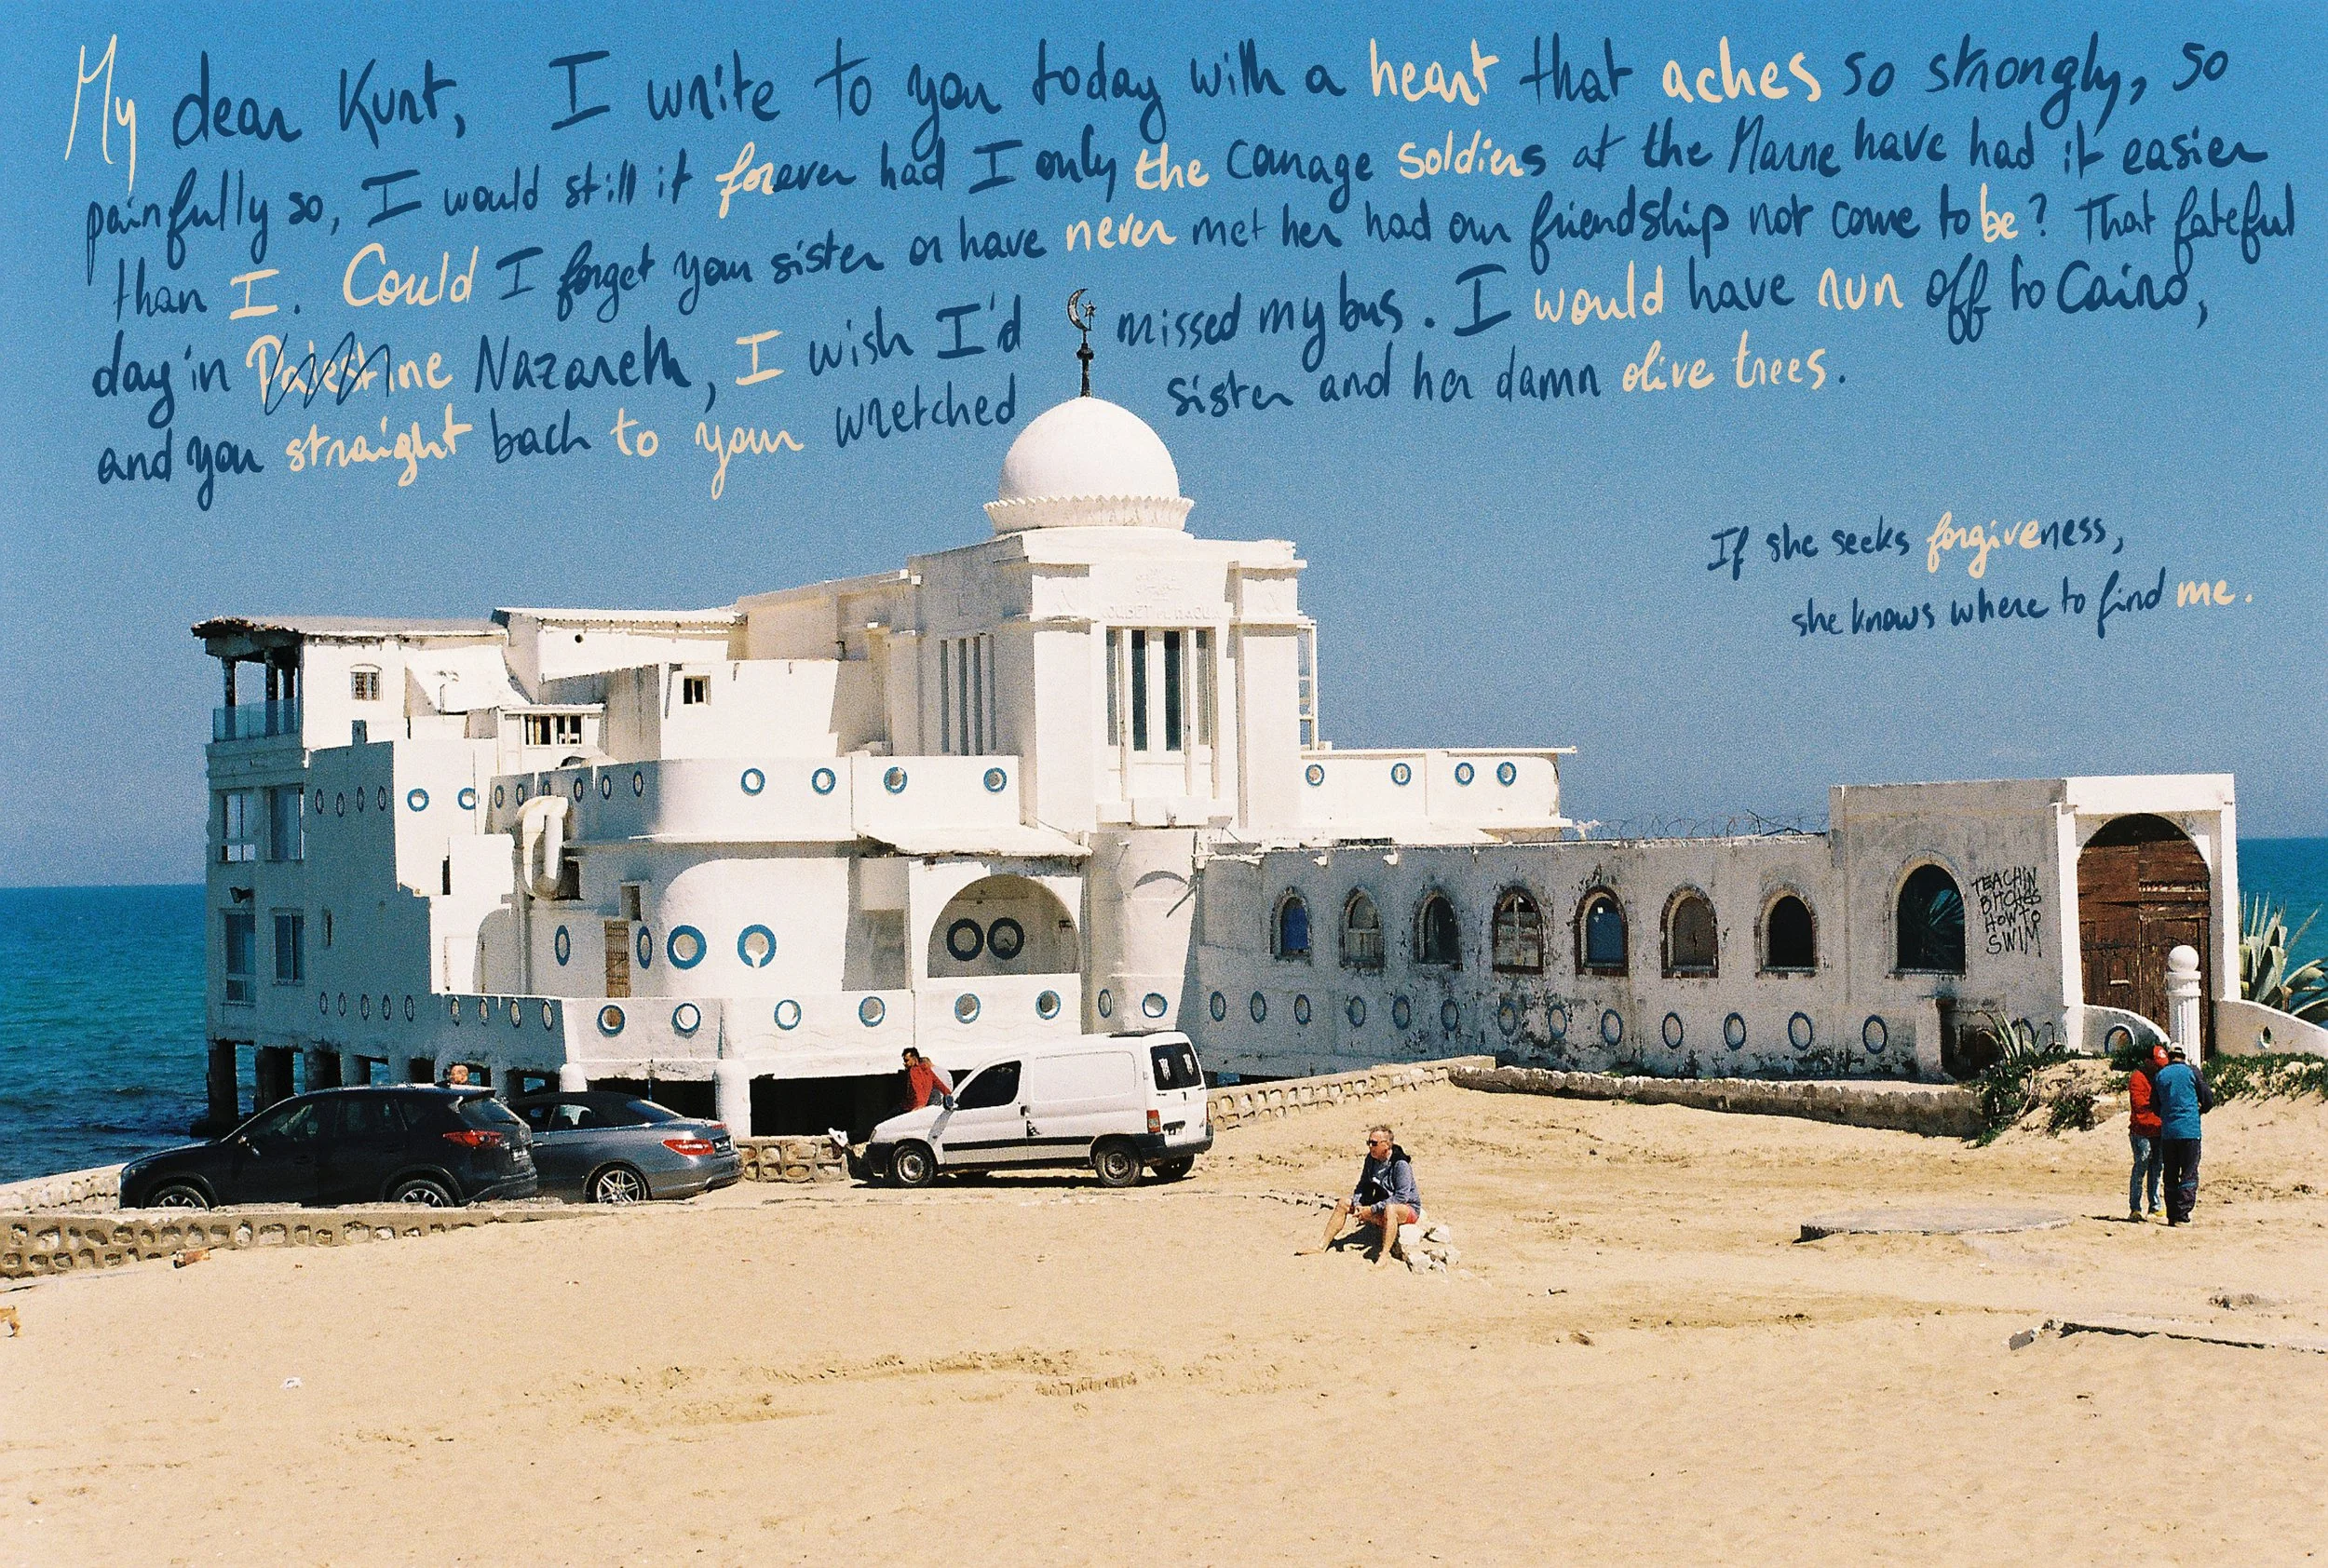 My dear Kurt, I write to you today with a heart that aches so strongly, so
painfully so, I would still it forever had I only the courage soldiers at the Marne have had it easier
than I. Could I forget your sister or have never met her had our friendship not come to be? That fateful
day in Palestine Nazareth, I wish I'd missed my bus. I would have run off to Cairo,
and you straight back to your wretched sister and her damn olive trees.
If she seeks forgiveness,
she knows where to find me.
TEACHIN
BITCHES
HOW TO
SWIM